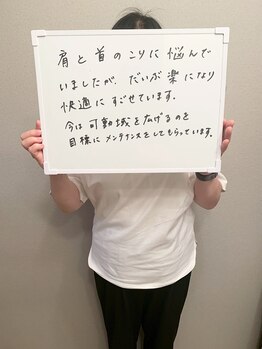 肩と首のこりに悩んで
いましたが、だいが楽になり
快適にすごせています。
今は可動域を広げるのを
目標にメンテナンスをしてもらっています。